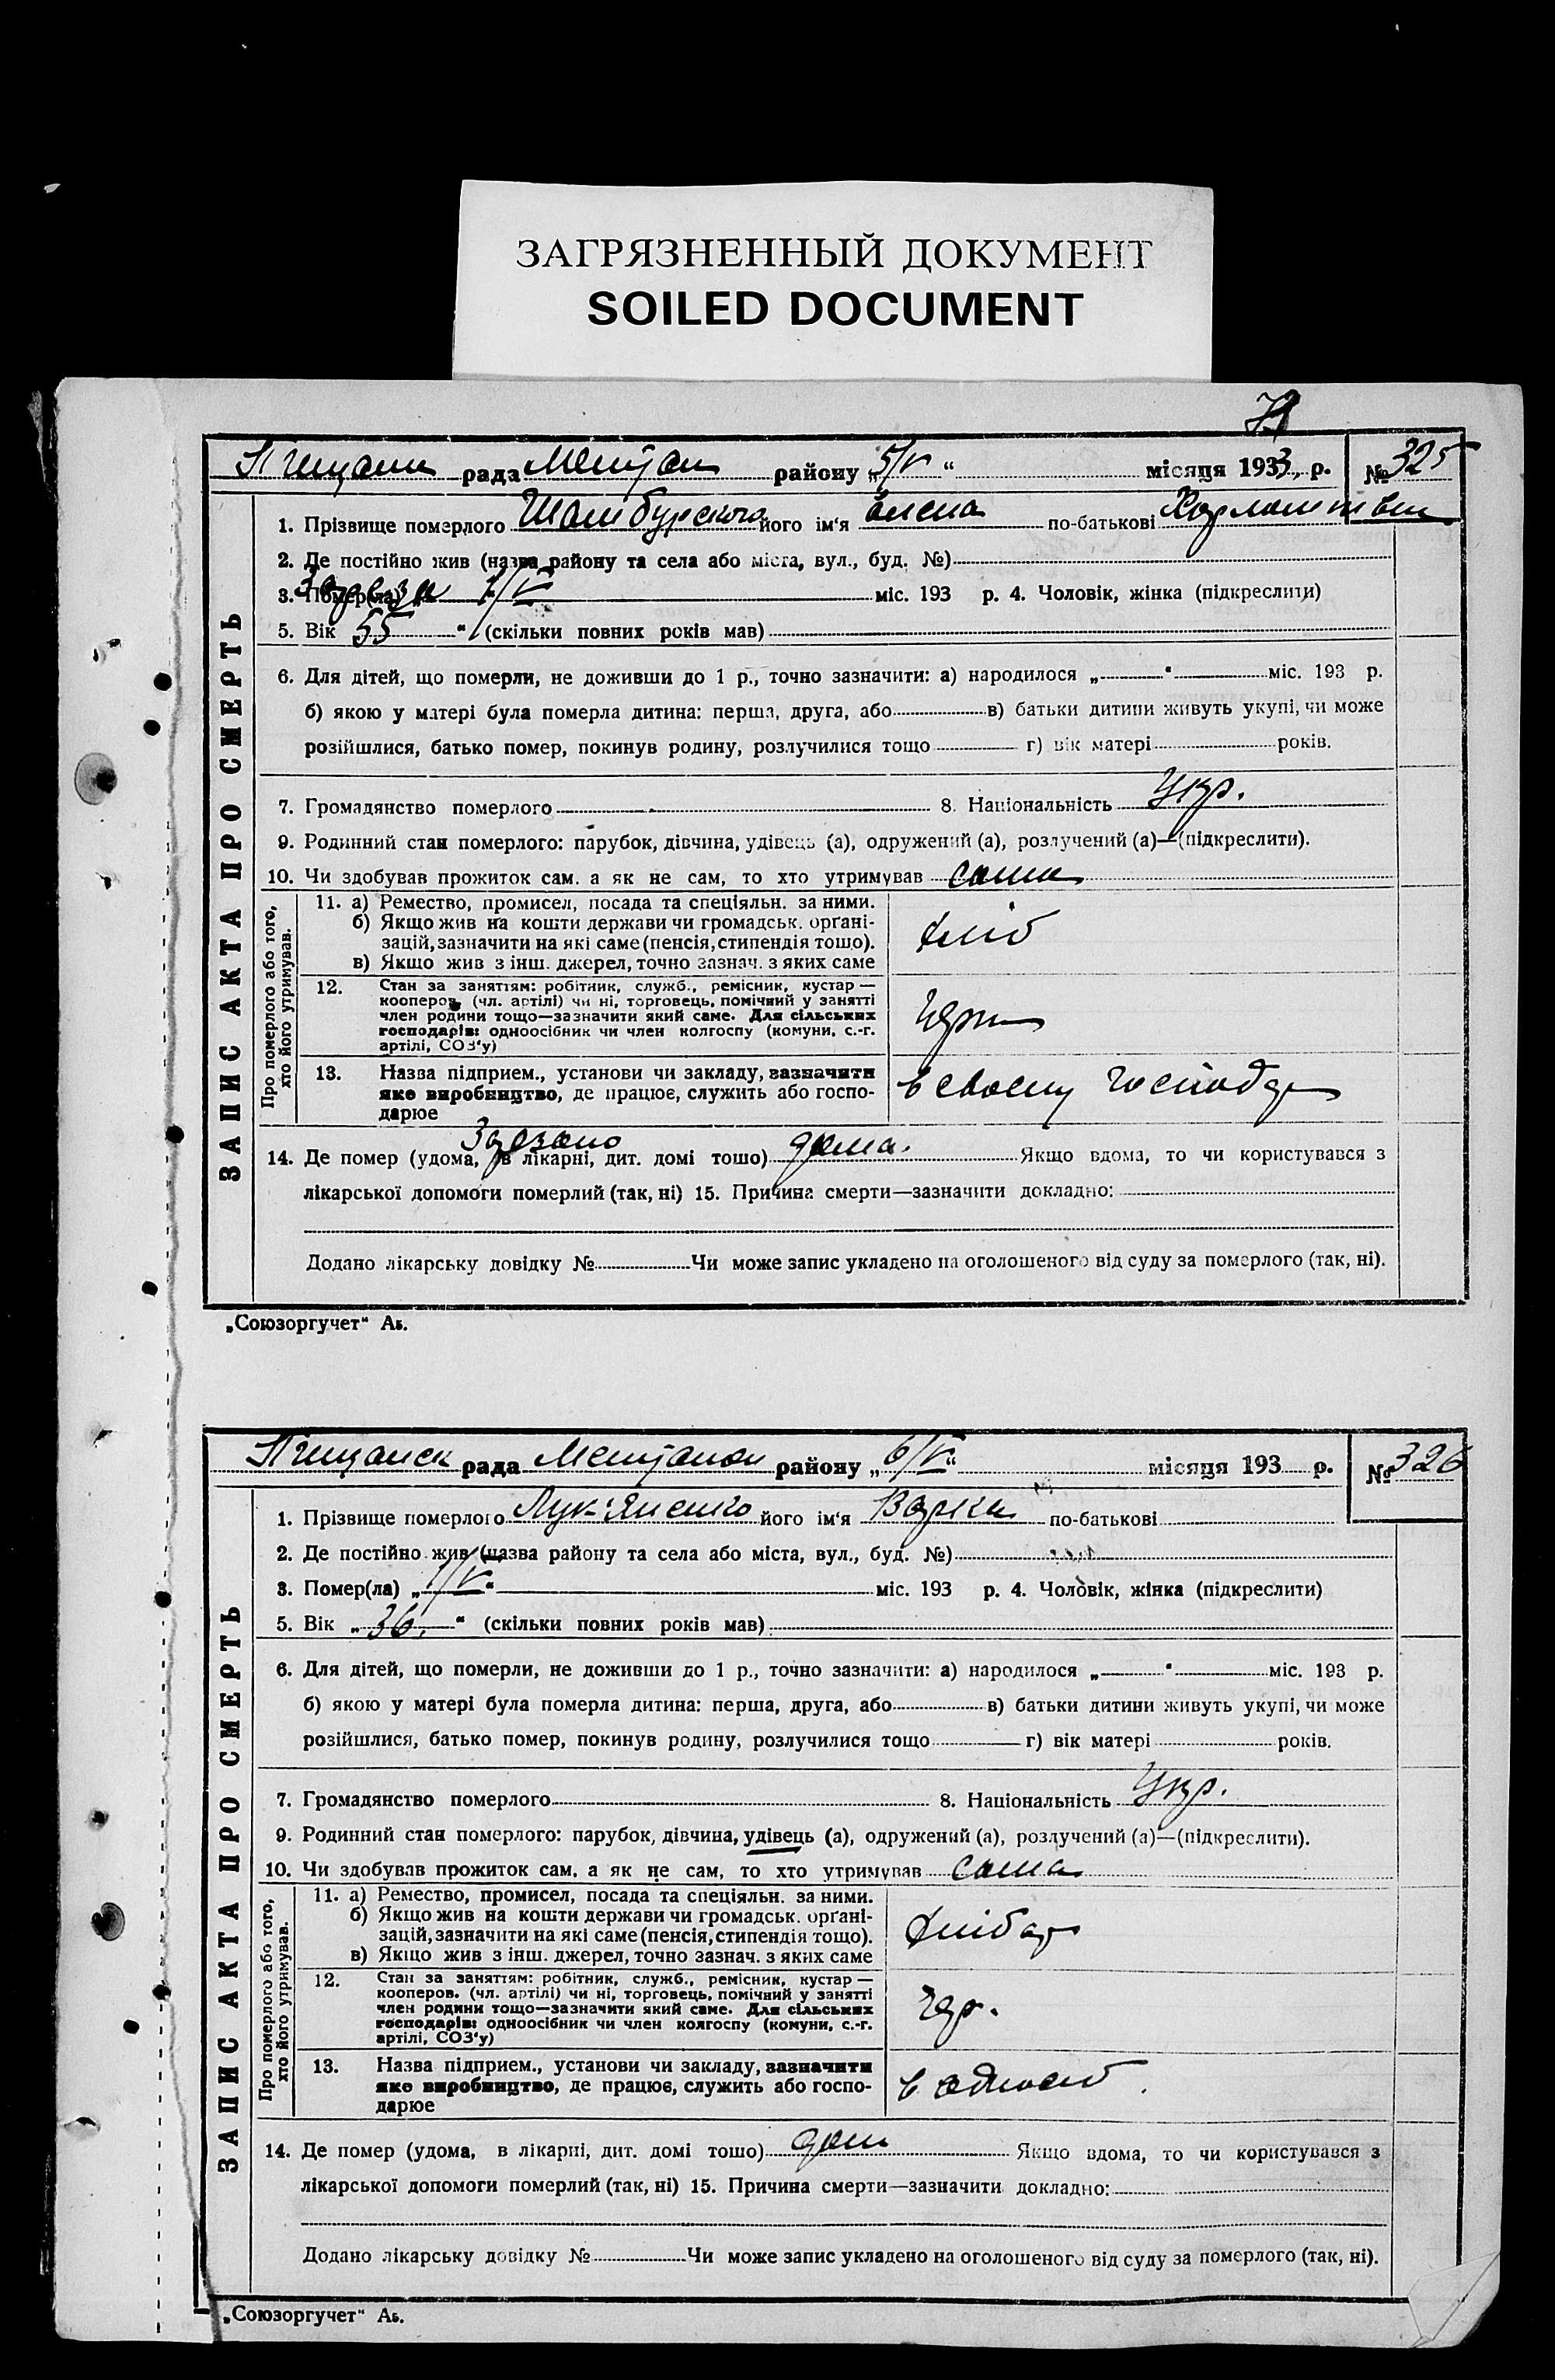 ЗАГРЯЗНЕННЫЙ ДОКУМЕНТ
SOILED DOCUMENT
рада району „5/V“ місяця 1933 р. № 325
1. Прізвище померлого його ім'я по-батькові
2. Де постійно жив (назва району та села або міста, вул., буд. №)
3. Помер(ла) 1/V міс. 193 р. 4. Чоловік, жінка (підкреслити)
5. Вік 55 “ (скільки повних років мав)
6. Для дітей, що померли, не доживши до 1 р., точно зазначити: а) народилося „ “ міс. 193 р.
б) якою у матері була померла дитина: перша, друга, або в) батьки дитини живуть укупі, чи може
розійшлися, батько помер, покинув родину, розлучилися тощо г) вік матері років.
7. Громадянство померлого 8. Національність Укр.
9. Родинний стан померлого: парубок, дівчина, удівець (а), одружений (а), розлучений (а)—(підкреслити).
10. Чи здобував прожиток сам, а як не сам, то хто утримував сама
11. а) Ремество, промисел, посада та спеціяльн. за ними.
б) Якщо жив на кошти держави чи громадськ. орґані-
зацій, зазначити на які саме (пенсія, стипендія тощо).
в) Якщо жив з інш. джерел, точно зазнач. з яких саме
12. Стан за заняттям: робітник, служб., ремісник, кустар —
кооперов. (чл. артілі) чи ні, торговець, помічний у занятті
член родини тощо—зазначити який саме. Для сільських
господарів: одноосібник чи член колгоспу (комуни, с.-г.
артілі, СОЗ'у)
13. Назва підприєм., установи чи закладу, зазначити
яке виробництво, де працює, служить або госпо-
дарює
в своему
Про померлого або того,
хто його утримував.
Зарезано
14. Де помер (удома, в лікарні, дит. домі тошо) дома. Якщо вдома, то чи користувався з
лікарської допомоги померлий (так, ні) 15. Причина смерти—зазначити докладно:
Додано лікарську довідку № Чи може запис укладено на оголошеного від суду за померлого (так, ні).
ЗАПИС АКТА ПРО СМЕРТЬ
„Союзоргучет“ Аь.
рада району „6/V“ місяця 193 р. № 326
1. Прізвище померлого Лук'яненко його ім'я Варка по-батькові
2. Де постійно жив (назва району та села або міста, вул., буд. №)
3. Помер(ла) „1/V“ міс. 193 р. 4. Чоловік, жінка (підкреслити)
5. Вік „36.“ (скільки повних років мав)
6. Для дітей, що померли, не доживши до 1 р., точно зазначити: а) народилося „ “ міс. 193 р.
б) якою у матері була померла дитина: перша, друга, або в) батьки дитини живуть укупі, чи може
розійшлися, батько помер, покинув родину, розлучилися тощо г) вік матері років.
7. Громадянство померлого 8. Національність Укр.
9. Родинний стан померлого: парубок, дівчина, удівець (а), одружений (а), розлучений (а)—(підкреслити).
10. Чи здобував прожиток сам, а як не сам, то хто утримував сама
11. а) Ремество, промисел, посада та спеціяльн. за ними.
б) Якщо жив на кошти держави чи громадськ. орґані-
зацій, зазначити на які саме (пенсія, стипендія тощо).
в) Якщо жив з інш. джерел, точно зазнач. з яких саме
12. Стан за заняттям: робітник, служб., ремісник, кустар —
кооперов. (чл. артілі) чи ні, торговець, помічний у занятті
член родини тощо—зазначити який саме. Для сільських
господарів: одноосібник чи член колгоспу (комуни, с.-г.
артілі, СОЗ'у)
13. Назва підприєм., установи чи закладу, зазначити
яке виробництво, де працює, служить або госпо-
дарює
Про померлого або того,
хто його утримував.
14. Де помер (удома, в лікарні, дит. домі тошо) Якщо вдома, то чи користувався з
лікарської допомоги померлий (так, ні) 15. Причина смерти—зазначити докладно:
Додано лікарську довідку № Чи може запис укладено на оголошеного від суду за померлого (так, ні).
ЗАПИС АКТА ПРО СМЕРТЬ
„Союзоргучет“ Аь.